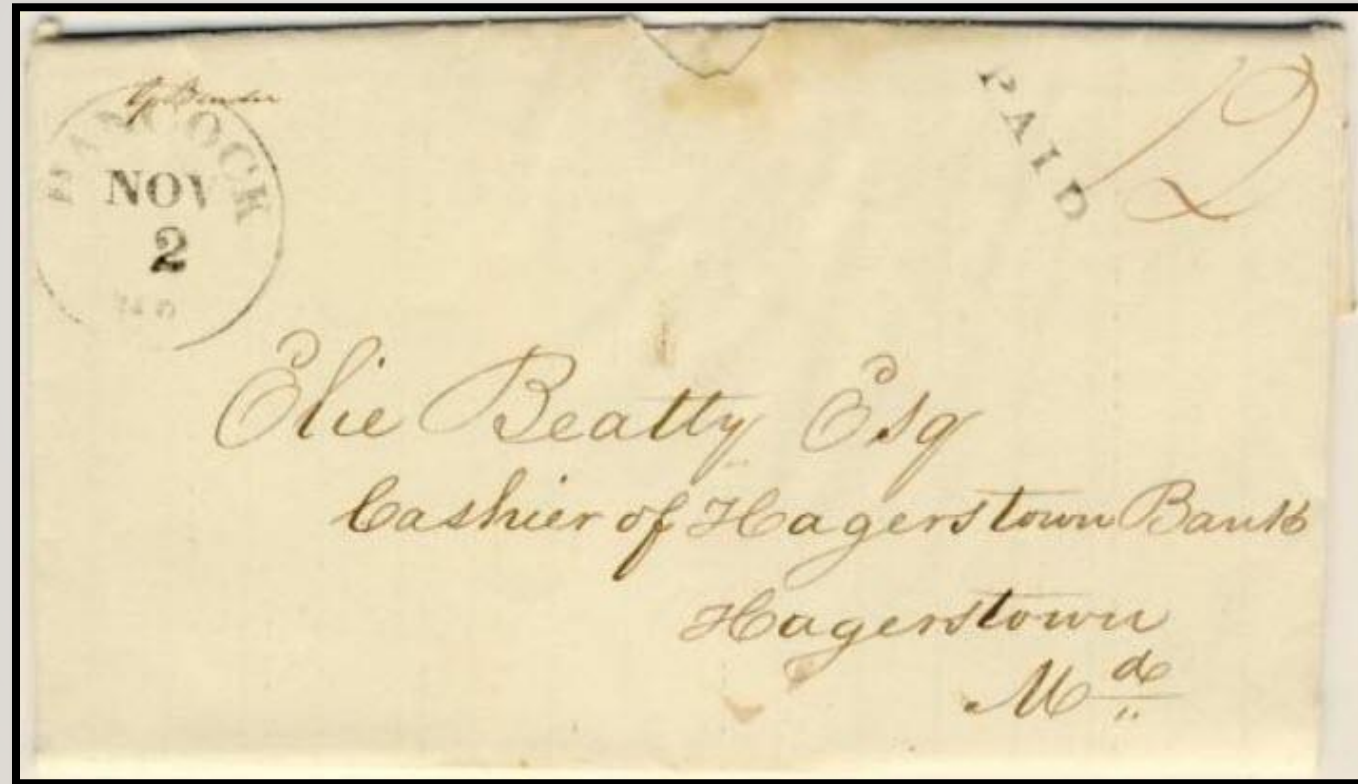 HANCOCK
NOV
2
MD
PAID
12
Elie Beatty Esq
Cashier of Hagerstown Bank
Hagerstown
Md